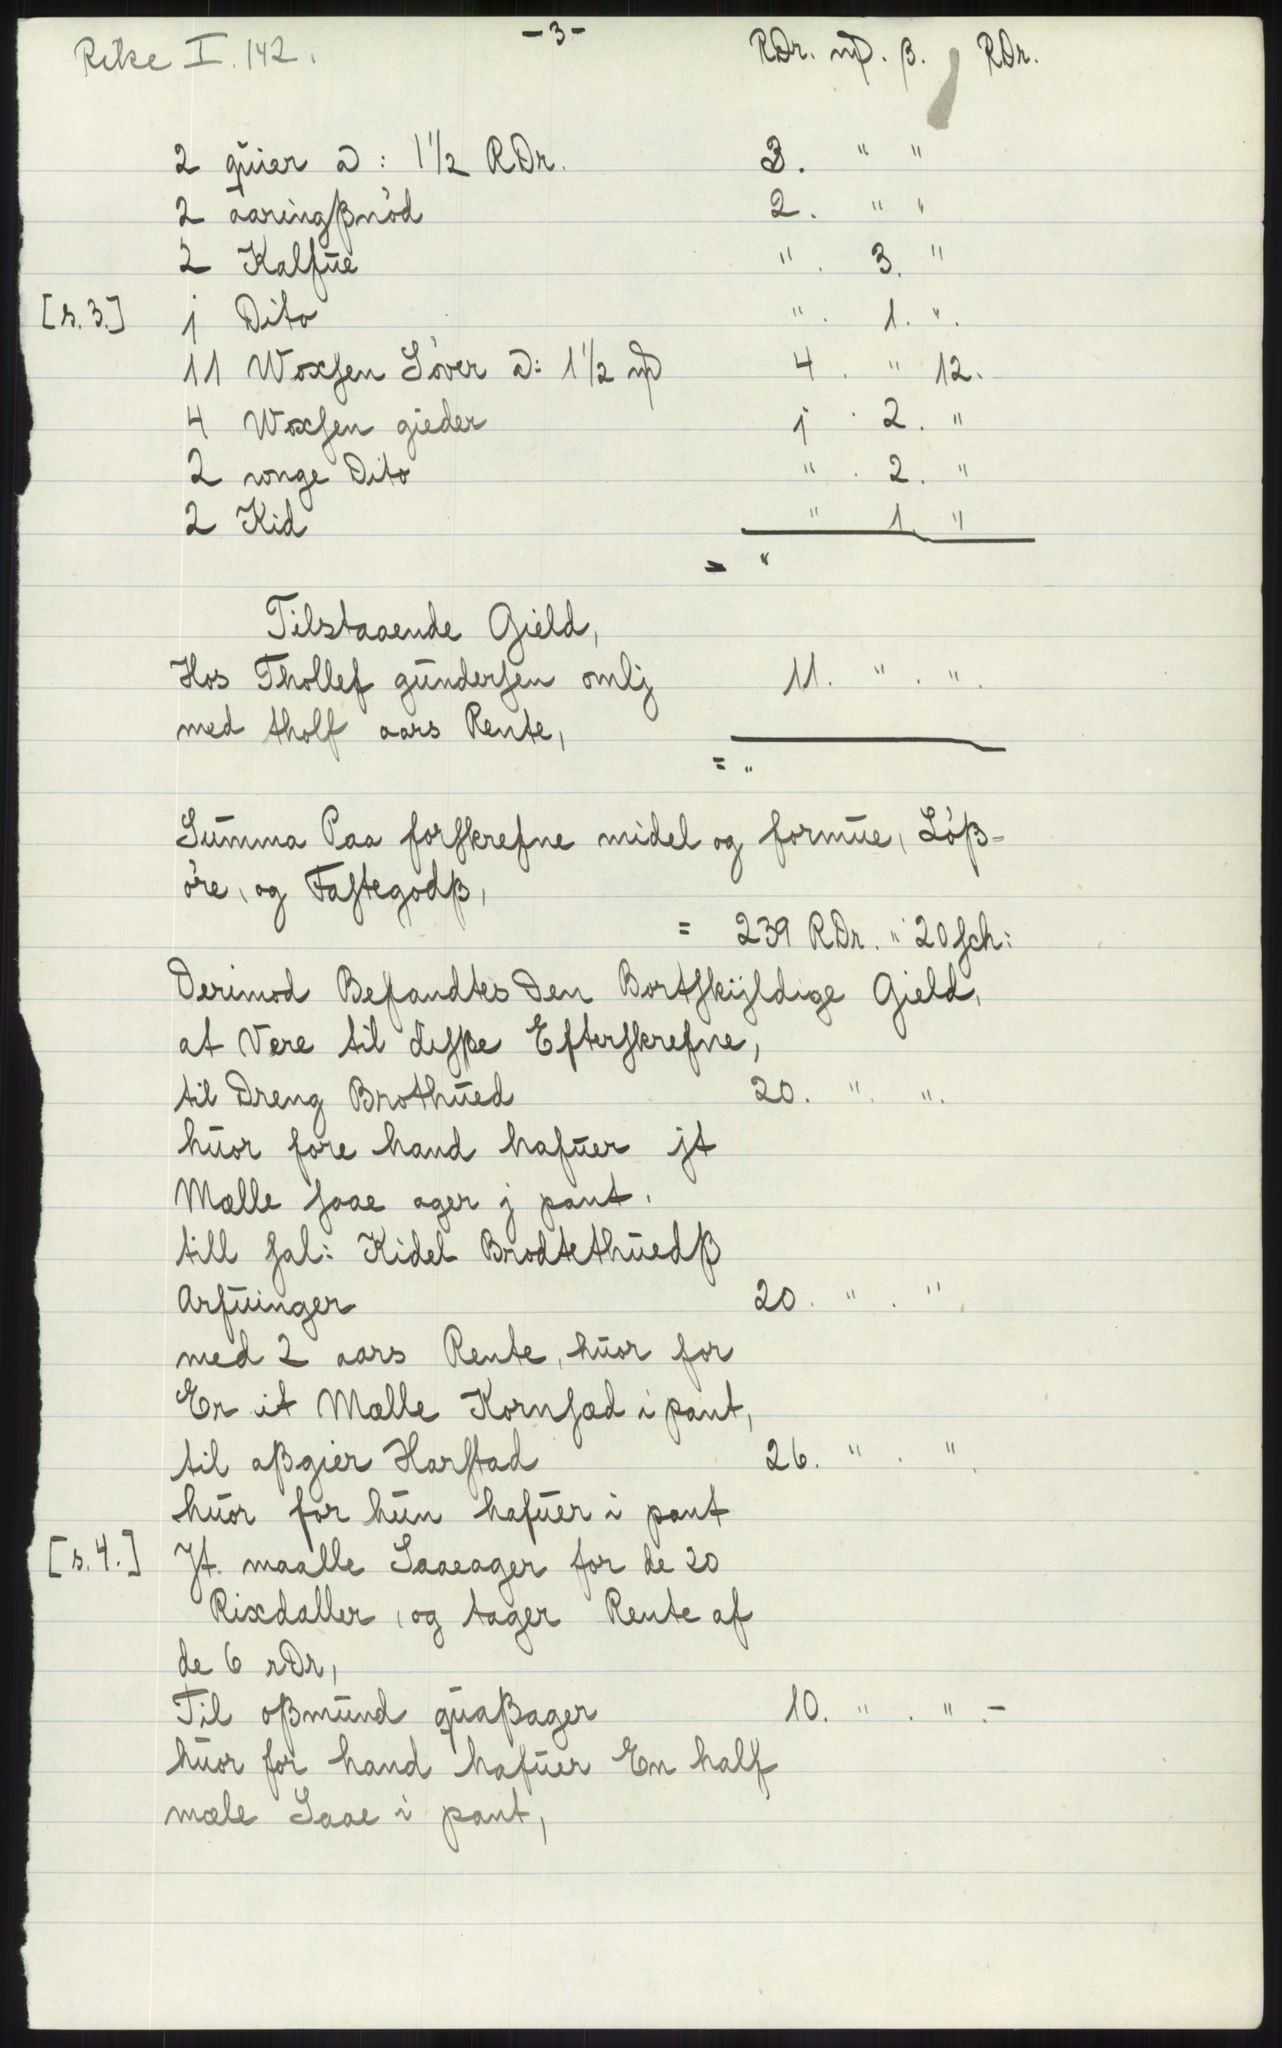 Rike I. 142.
-3-
RDr. mþ. β. RDr.
2 quier a: 1 1/2 RDr. 3. " "
2 aaringβnød 2. " "
2 Kalfue ". 3. "
[s. 3.] j Dito ". 1. ".
11 Woxsen Søver a: 1 1/2 mþ 4. " 12.
4 Woxsen gieder j. 2. "
2 vonge Dito ". 2. "
2 Kid " 1. "
= "
Tilstaaende Gield,
Hos Thollef gundersen omlj 11. ". ".
med tholf aars Rente,
= "
Summa Paa forskrefne midel og formue, Løβ-
øre, og Fastegodβ,
= 239 RDr. " 20 sch:
Derimod Befandtes Den Bortskÿldige Gield,
at Vere til disβe Efterskrefne,
til Dreng Brothued 20. ". ".
huor fore hand hafuer jt
Mælle saae ager j pant.
till sal: Kidel Brodtethuedβ
Arfuinger 20. ". "
med 2 aars Rente, huor for
Er it Mælle Kornsæd i pant,
til aβgier Harstad 26. ". ".
huor for hun hafuer i pant
[s. 4.] Jt. maalle Saaeager for de 20
Rixdaller, og tager Rente af
de 6 rDr,
Til oβmund quaβager 10. ". ".-
huor for hand hafuer En half
mæle Saae i pant,